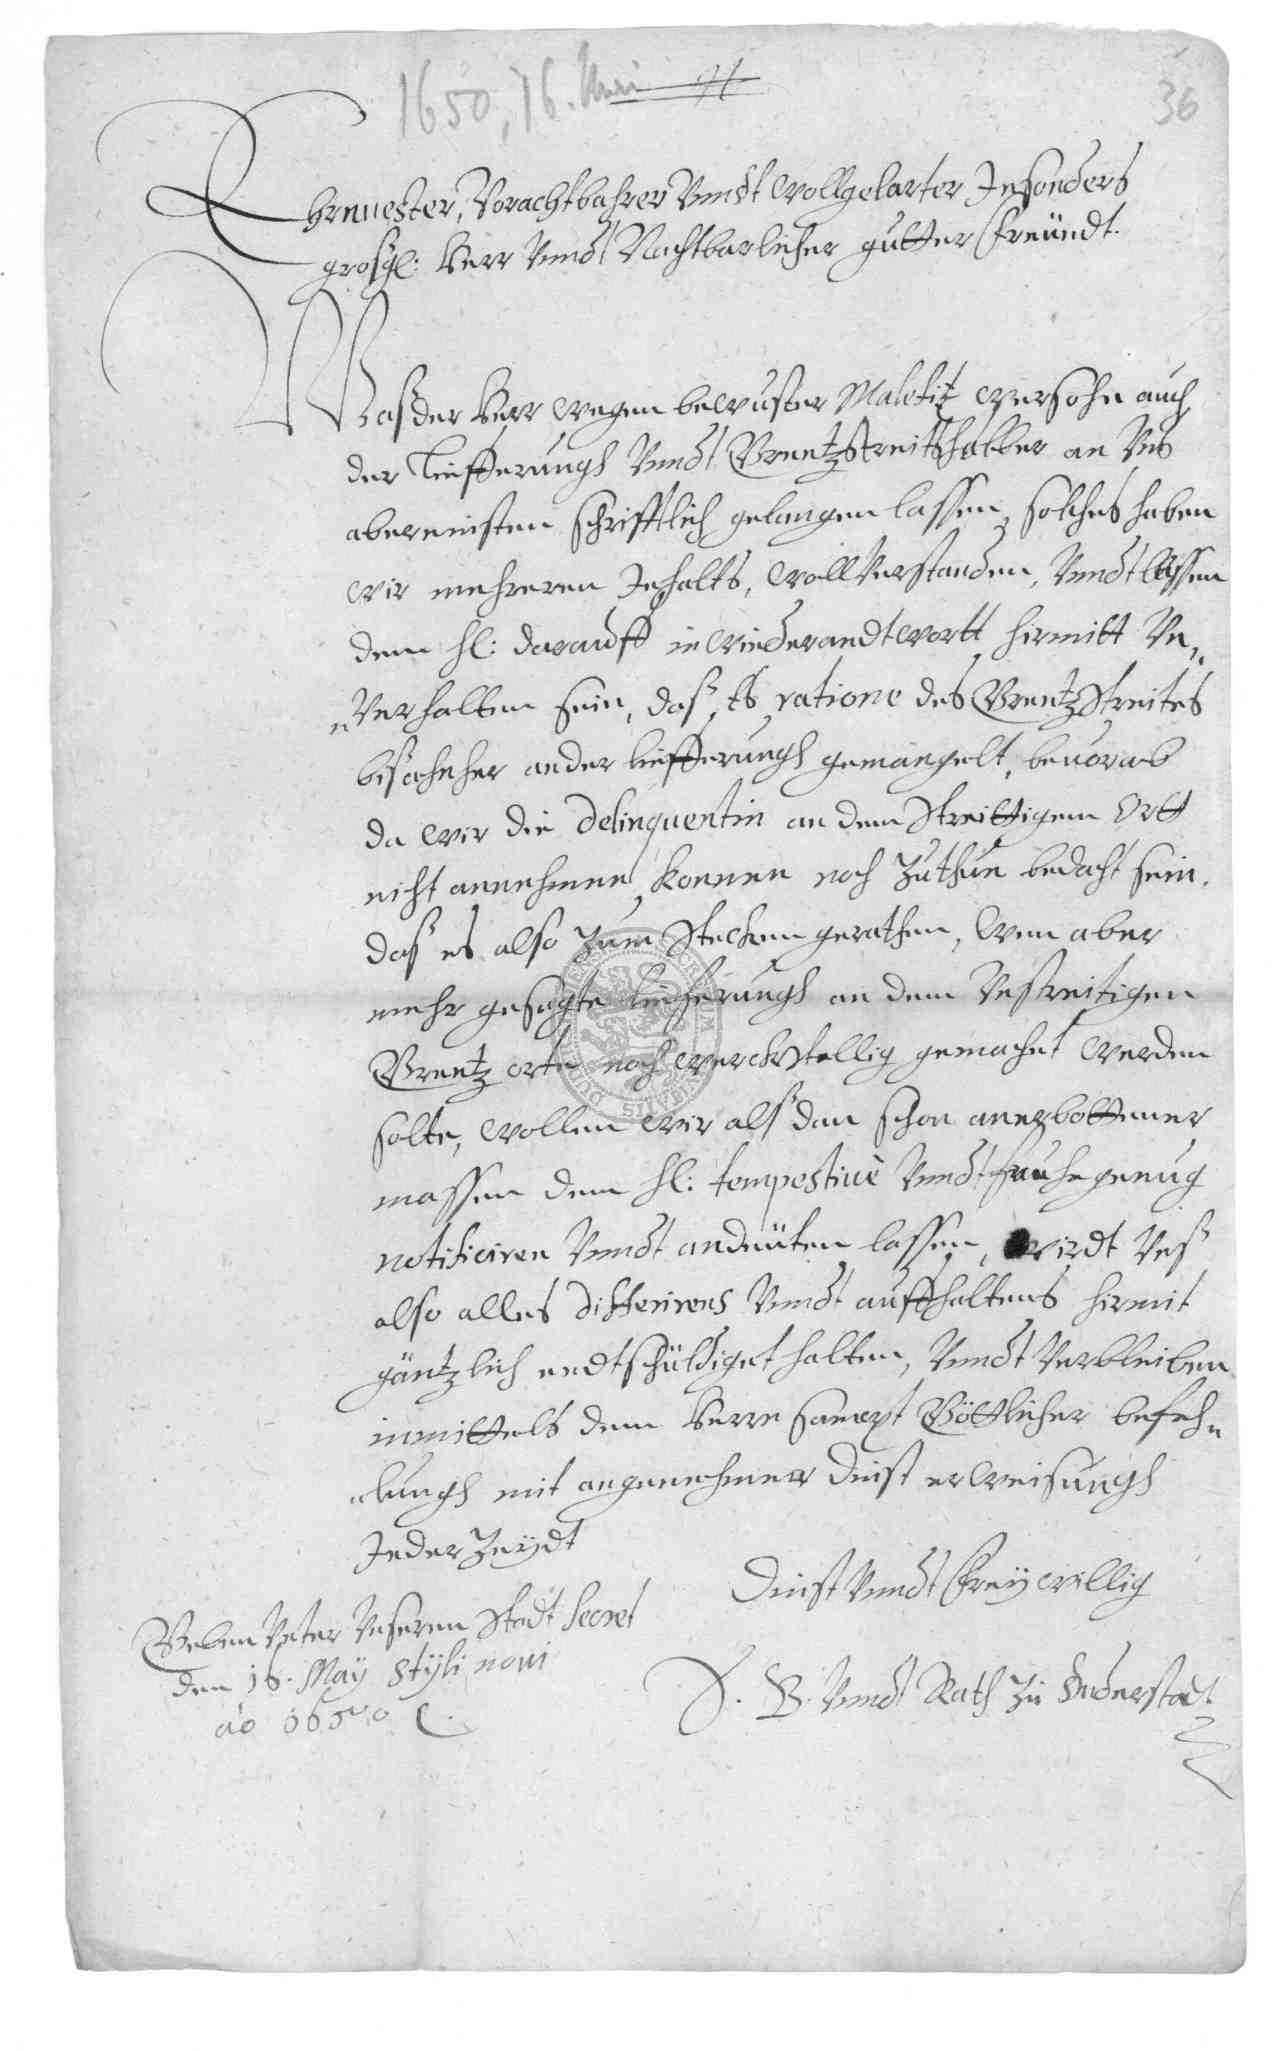 1650, 16. Mai
36
Ehrnuester, Vorachtbahrer Vnndt wollgelarter Jnsonders
grosgl: Herr Vnndt Nachtbarlicher gutter Freündt.
Waß der Herr wegen bewuster Malefitz persohn auch
der Liefferungh Vnndt Grentzstreitshalber an Vns
abermisten schrifftlich gelangen lassen, solches haben
wir mehreren Jnhalts, wollVerstanden, Vnndt lassen
dem hl: darauff in wiederandtwortt hirmitt Vn„
„Verhalten sein, daß es ratione des Grentzstreites
bisahnher an der liefferungh gemangelt, beuorab
da wir die delinquentin an dem streittigem Ortt
nicht annehmen konnen noch Zuthun bedacht sein.
daß es also Zum stecken gerathen, Wan aber
mehr gesagte lieferungh an dem Vnstreitigen
Grentz orte noch werckstellig gemachet werden
solte, wollen wir alß dan schon anerbottener
massen dem hl: tempestiuè Vnndt fruhe genug
notificiren Vnndt andeüten lassen, wirdt Vnß
also alles differirens Vnndt auffhaltens hirmit
gäntzlich endtschüldiget halten, Vnndt Verbleiben
inmittels dem Herrn sampt Göttlicher befeh„
„lungh mit angenehmer dinst erweisungh
Jederzeydt
Dinst Vnndt Freywillig
Geben Vnter Vnserem Stadt Secret
den 16. Maÿ Stÿli noui
ao 1650
B. Vnndt Rath Zu Duderstadt